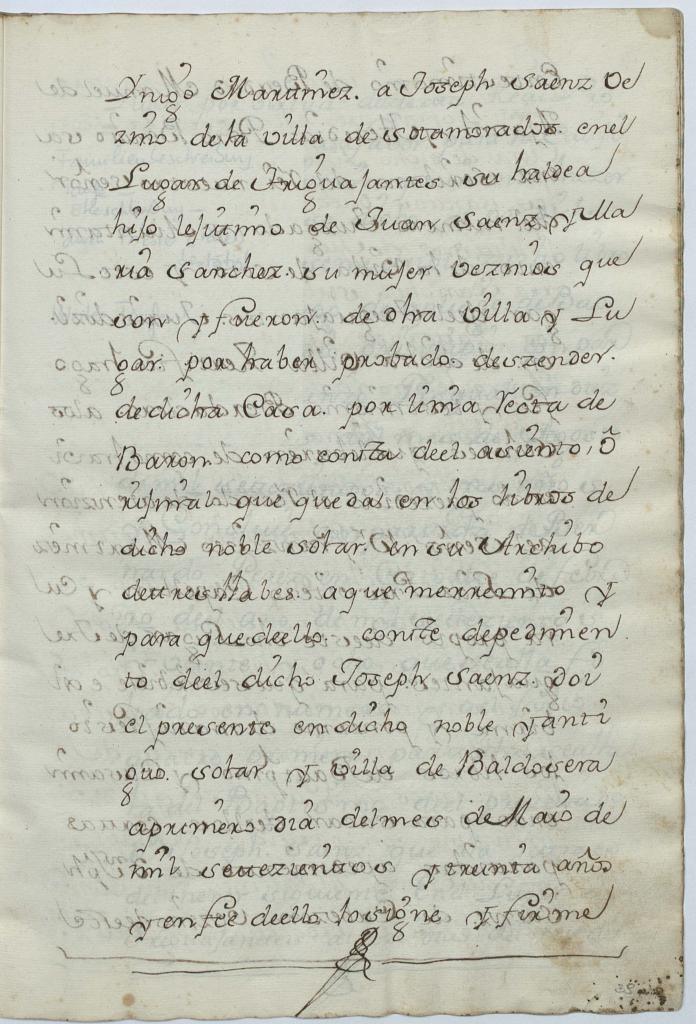 Ynigo Martinez. a Joseph Saenz Ve
zino de la villa de sotamorados. enel
Lugar de Iriguajantes su haldea
hijo lejitimo de Juan Saenz y Ma
ria Sanchez. su mujer vezinos que
son y fueron. de dha villa y Lu
gar. por haber probado deszender.
de dicha Casa. por linia recta de
Baron. como consta deel asiento, o
rijinal que queda en los libros de
dicho noble solar. en su Archibo
detres llabes. aque merremito y
para quedeello conste depedimen
to deel dicho Joseph Saenz. doi
el presente en dicho noble yanti
guo. solar y villa de Baldosera
aprimero dia delmes de Maio de
mil setezientos ytreinta años
y enfee deello losigne yfirme